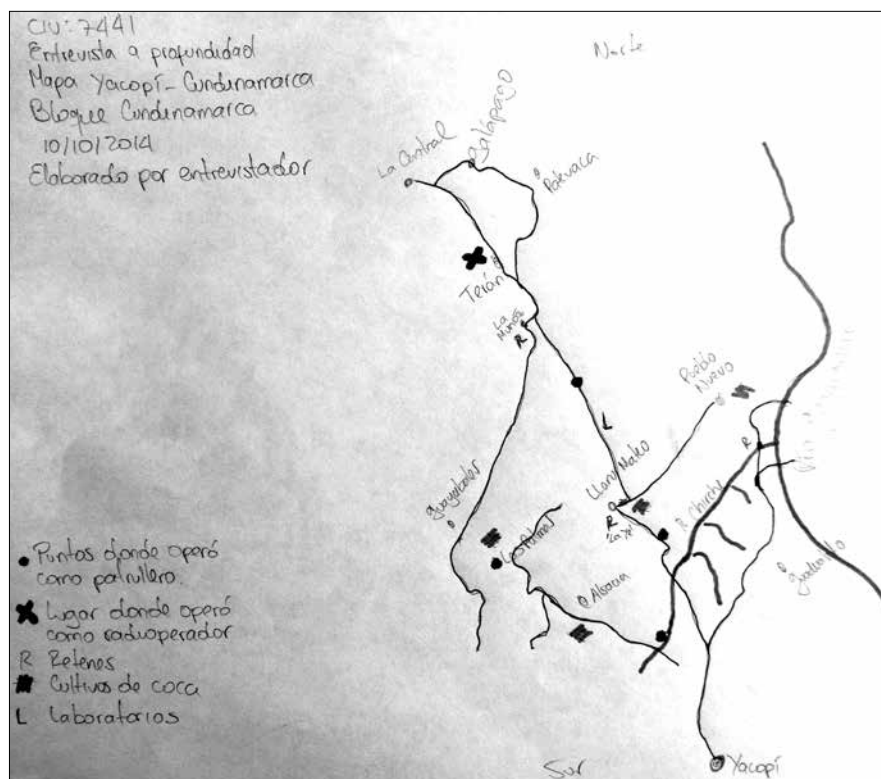 CIU: 7441
Entrevista a profundidad
Mapa Yacopí - Cundinamarca
Bloque Cundinamarca
10/10/2014
Elaborado por entrevistador
Norte
La Central
Galápago
Patevaca
Terán
La Muñoz
R
Pueblo Nuevo
L
Llano Mateo
R
La Ye
R
R Chirche
Guayabales
Las Palmas
Alsacia
Guadualito
Puntos donde operó
como patrullero.
Lugar donde operó
como radioperador
R Retenes
Cultivos de coca
L Laboratorios
Sur
Yacopí